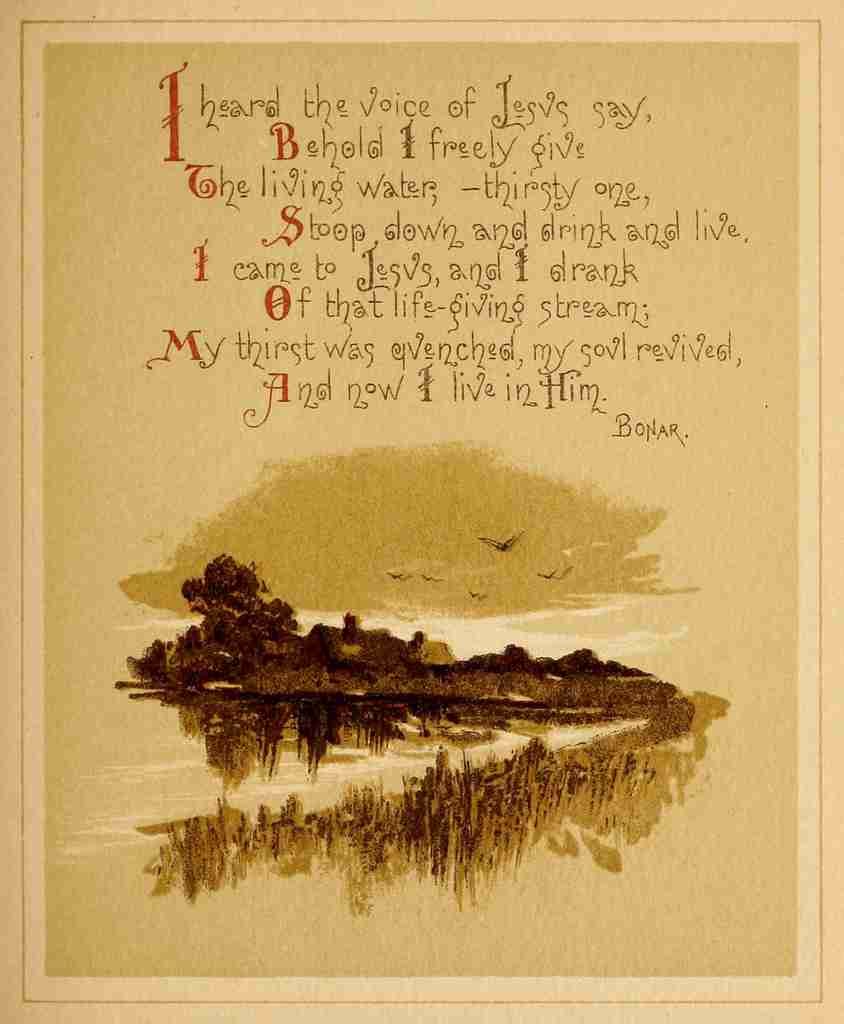 I heard the voice of Jesvs say,
Behold I freely give
The living water, -thirsty one,
Stoop down and drink and live.
I came to Jesvs, and I drank
Of that life-giving stream;
My thirst was qvenched, my sovl revived,
And now I live in Him.
BONAR.